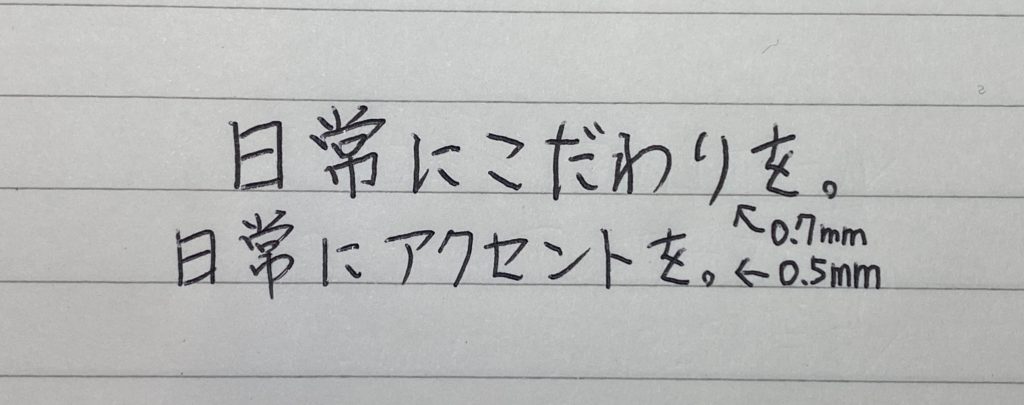 日常にこだわりを。
↖0.7mm
日常にアクセントを。←0.5mm